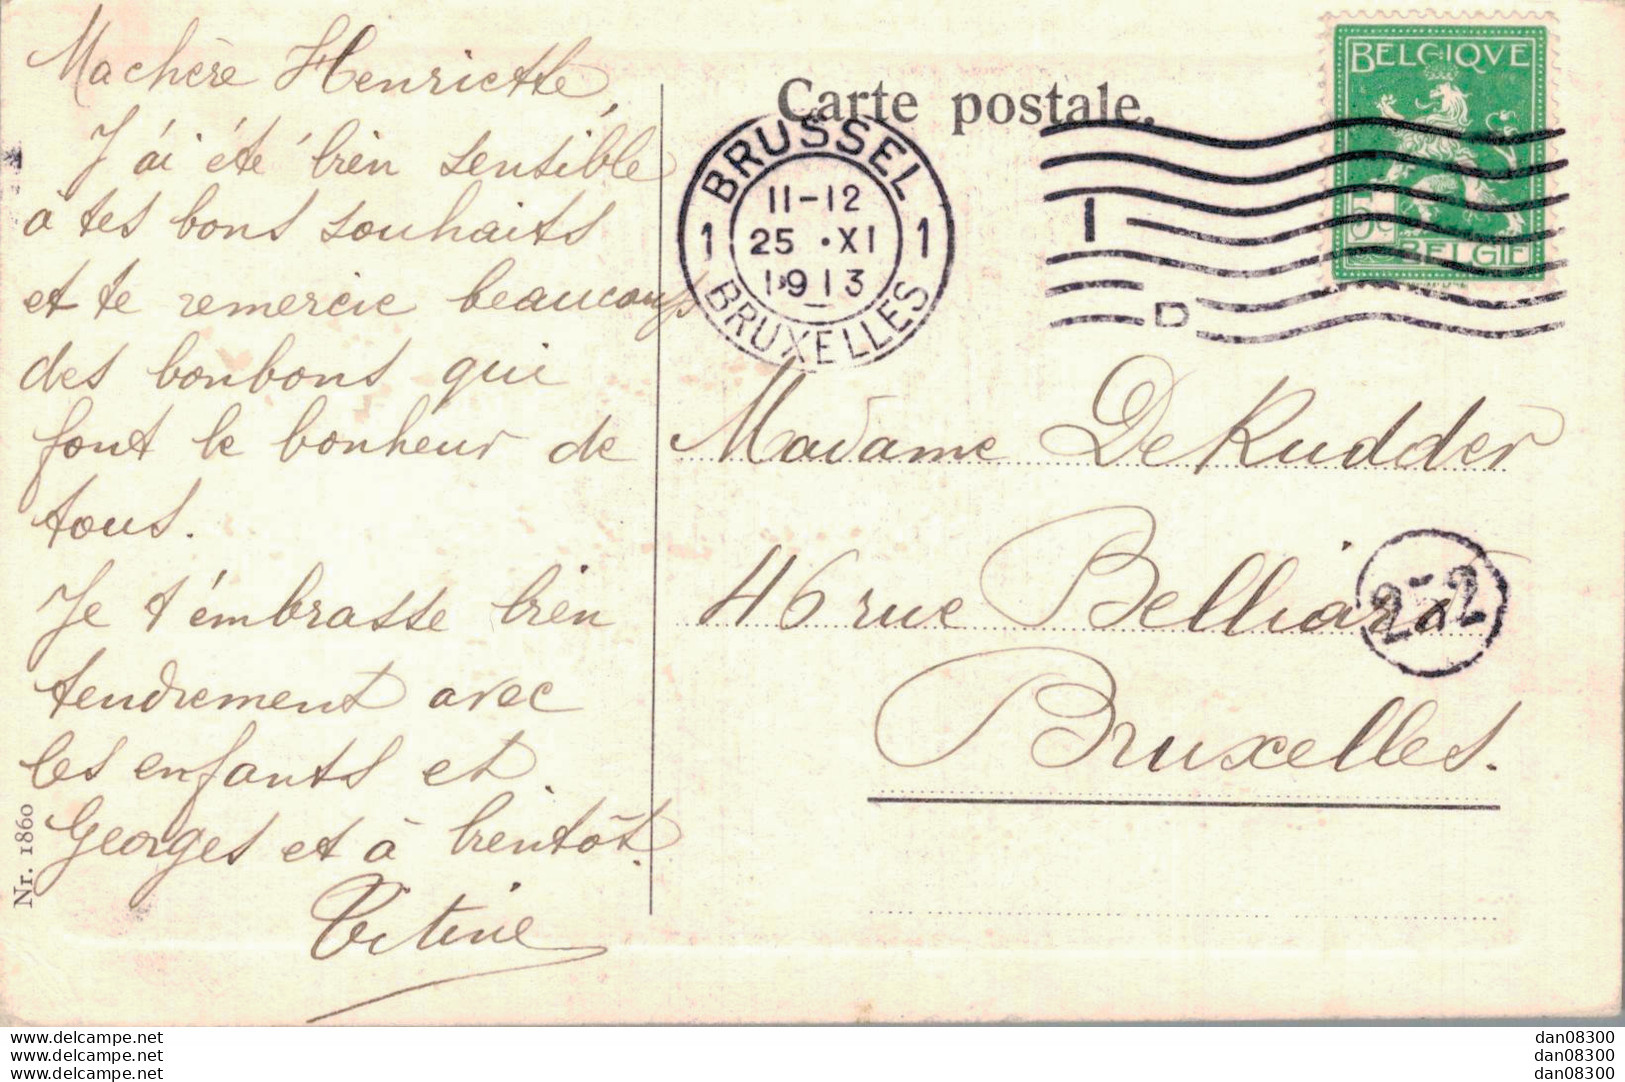 Machère Henriette,
J'ai été bien sensible
à tes bons souhaits
et te remercie beaucoup
des bonbons qui
font le bonheur de
tous.
Je t'embrasse bien
tendrement avec
les enfants et
Georges et à bientôt.
Titine
Nr. 1860
Carte postale.
BRUSSEL
11-12
1 25 · XI 1
1913
BRUXELLES
1
D
BELGIQVE
5c
BELGIË
Madame De Rudder
46 rue Belliard
252
Bruxelles.
www.delcampe.net
www.delcampe.net
www.delcampe.net
dan08300
dan08300
dan08300